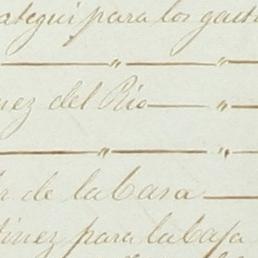 ategui para los gast
— " — "
nez del Rio — "
— " — "
r de la Casa —
tinez para la Caja